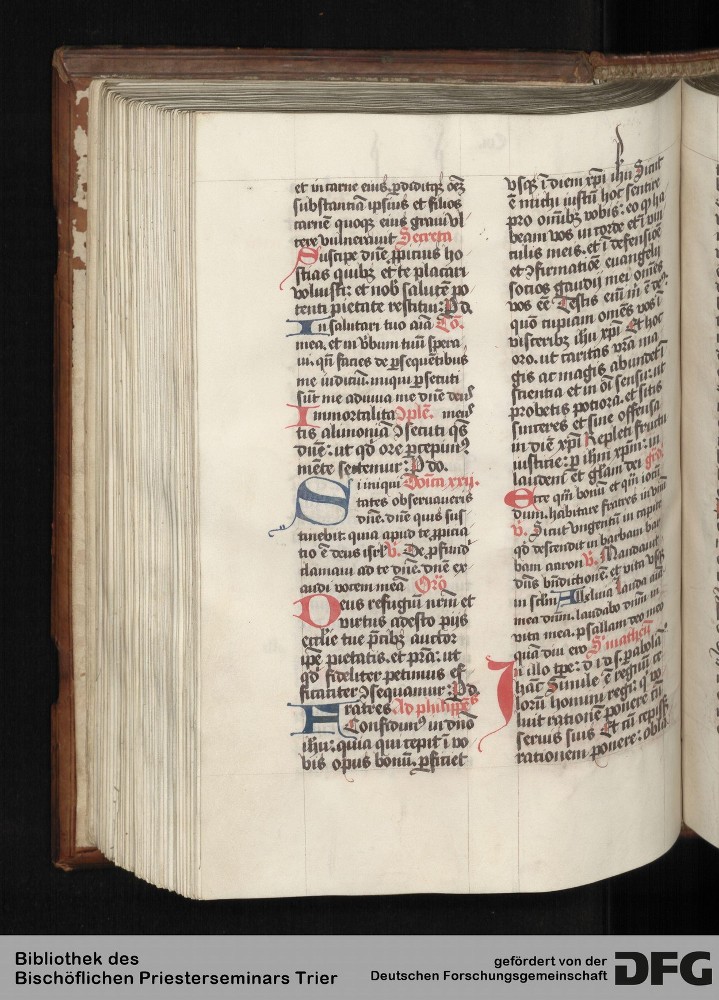 et in carne eius. ꝑdiditqꝫ oēꝫ
substantiā ipsius et filios
carnē quoqꝫ eius graui vl
cere vulnerauit Secreta
Suscipe dn̄e ꝓpicius ho
stias quibꝫ et te placari
voluisti: et nob̄ salutē po
tenti pietate restitui: P d.
In salutari tuo aīa Cō.
mea. et in v̄bum tuū spera
ui. qn̄ facies de ꝑsequētibus
me iudiciū. iniqui ꝑsecuti
sūt me adiuua me dn̄e deus
Immortalita ꝯplē. meus
tis alimoniā ꝯsecuti qs̄
dn̄e: ut qd̄ ore ꝑcepimꝰ
mēte sectemur: P do.
Si iniqui Dōica xxij.
tates obseruaueris
dn̄e. dn̄e quis sus
tinebit. quia apud te ꝓpicia
tio ē deus isrl̄ v̄. De ꝓfund
clamaui ad te dn̄e. dn̄e ex
audi vocem meā Orō
Deus refugiū nr̄m et
virtus adesto pijs
ecclīe tue p̄cibꝫ auctor
ip̄e pietatis. et p̄ra: ut
qd̄ fideliter petimus ef
ficaciter ꝯsequamur: P d.
Fratres Ad philippen̄
Confidimꝰ in dn̄o
ih̄u: quia qui cepit ī vo
bis opus bonū. ꝑficiet
vsqꝫ ī diem xp̄i ih̄u Sicut
ē michi iustū hoc sentire
pro om̄ibꝫ vobis: eo ꝙ ha
beam vos in corde et ī vin
culis meis. et ī defensiōe
et ꝯfirmatiōe euangelij
socios gaudij mei om̄es
vos eē Testis eni m̄ ē de᷒:
quō cupiam om̄es vos ī
visceribꝫ ih̄u xp̄i Et hoc
oro. ut caritas vr̄a ma
gis ac magis abundet ī
scientia et in oī sensu: ut
probetis potiora. et sitis
sinceres et sine offensa
in diē xp̄i Repleti fructu
iusticie: ꝑ ih̄m xp̄m: in
laudem et glām dei grā.
Ecce qm̄ bonū et qm̄ iocū
dum. habitare fratres in vnū
v̄. Sicut vngentū in capite
qd̄ descendit in barbam bar
bam aaron v̄. Mandauit
dn̄s bn̄dictionē. et vita vsqꝫ
in sclm̄ Alleluia Lauda aīa
mea dūm. laudabo dūm in
vita mea. psallam deo meo
quā diu ero S' matheū
In illo tp̄e: d i d s. parabolā
hāc Simile ē regnū ce
lorū homini regi: qͥ vo
luit rationē ponere cū
seruis suis Et cū cepiss
rationem ponere: obla
Bibliothek des
Bischöflichen Priesterseminars Trier
gefördert von der
Deutschen Forschungsgemeinschaft
DFG